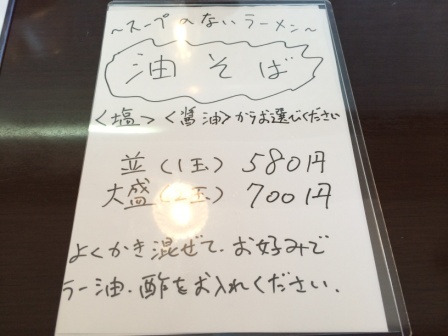 ～スープのないラーメン～
油そば
＜塩＞＜醤油＞からお選びください
並(1玉) 580円
大盛( 玉) 700円
よくかき混ぜて、お好みで
ラー油、酢をお入れください。